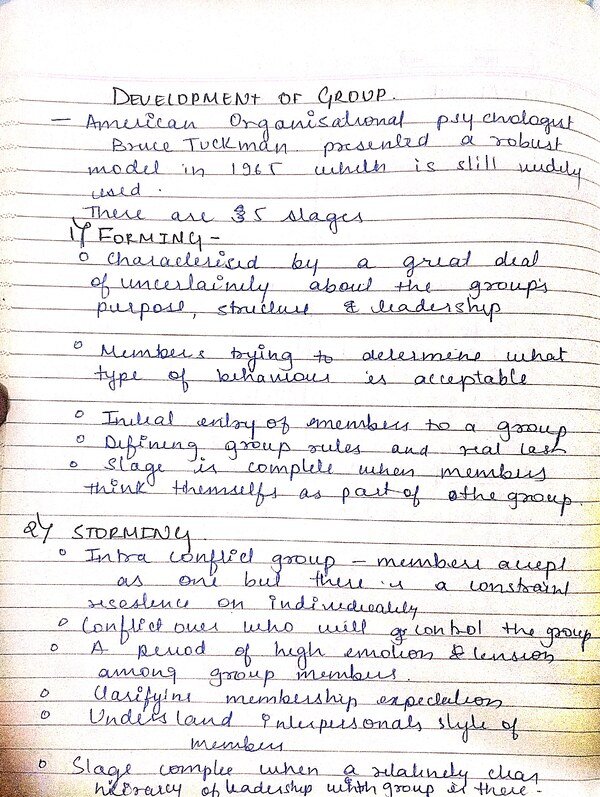 DEVELOPMENT OF GROUP.
— American Organisational psychologist
Bruce Tuckman presented a robust
model in 1965 which is still widely
used.
There are 5 stages
1) FORMING -
o Characterised by a great deal
of uncertainty about the group's
purpose, structure & leadership
o Members trying to determine what
type of behaviour is acceptable
o Initial entry of members to a group
o Defining group rules and real task
o Stage is complete when members
think themselfs as part of the group.
2) STORMING.
o Intra conflict group - members accept
as one but there is a constraint
resestence on individuality
o Conflict over who will control the group
o A period of high emotion & tension
among group members.
o Clarifying membership expectation
o Understand interpersonals style of
members
o Stage complee when a relatively clear
hierarcy of leadership with group is there.